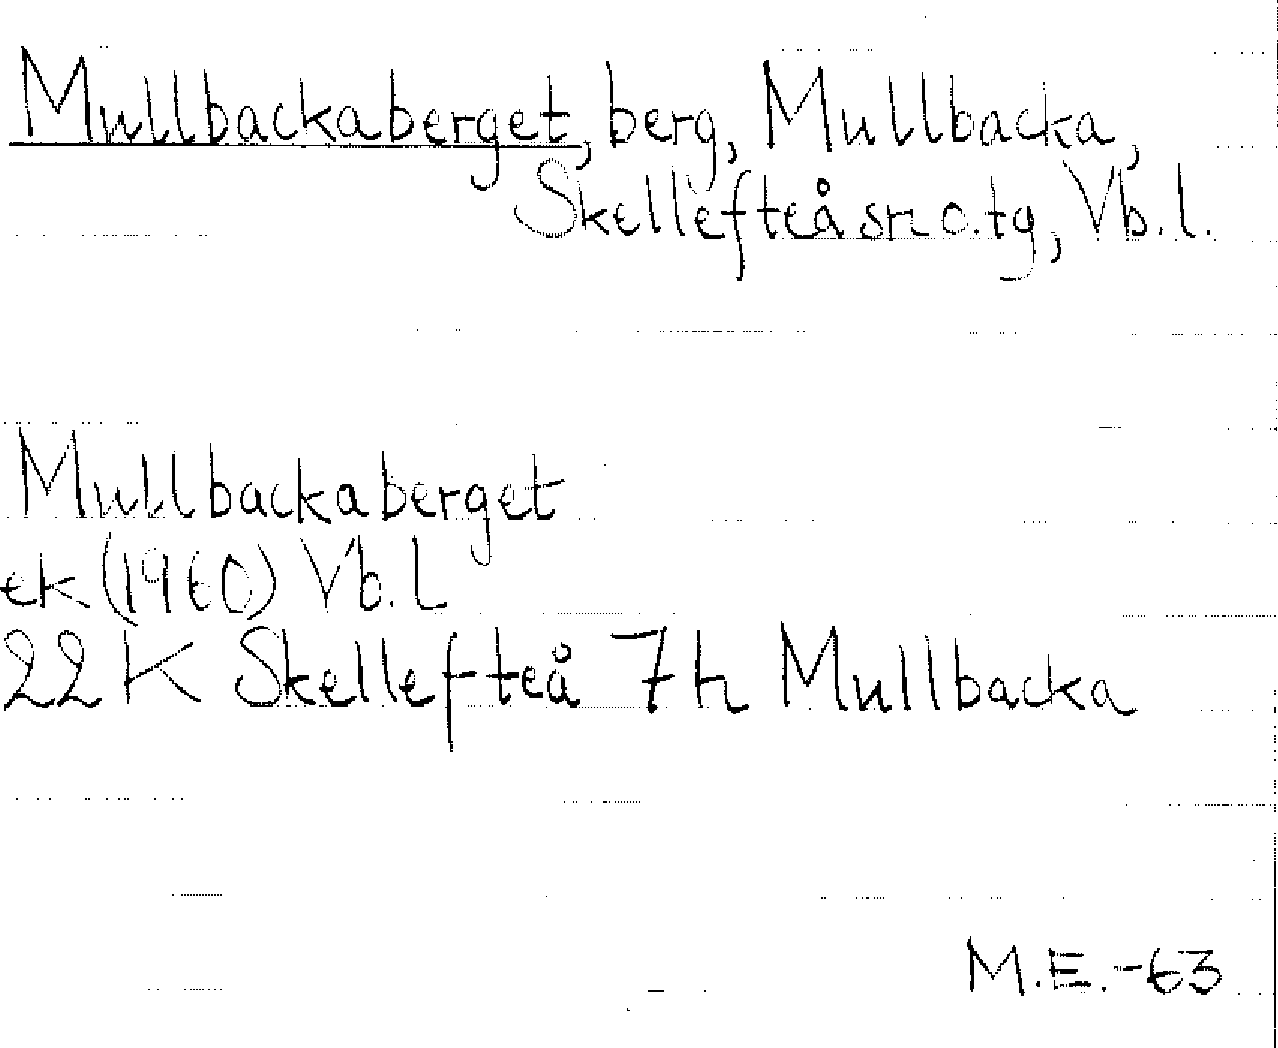 Mullbackaberget, berg, Mullbacka,
Skellefteå sn o. tg, Vb. l.
Mullbackaberget
ek (1960) Vb. l
22 K Skellefteå 7h Mullbacka
M.E.-63